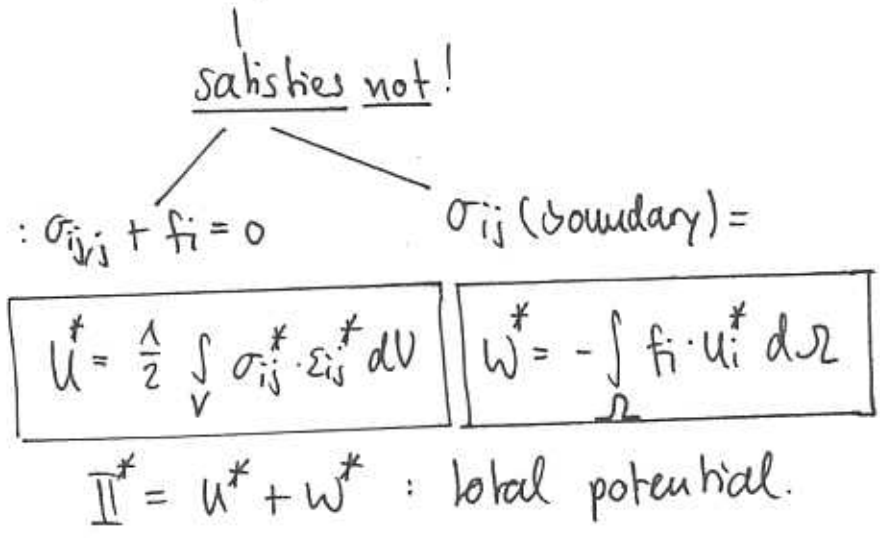 satisfies not!
: σij,j + fi = 0 σij (boundary) =
U* = 1/2 ∫V σij* · εij* dV W* = - ∫Ω fi · ui* dΩ
Π* = U* + W* : total potential.